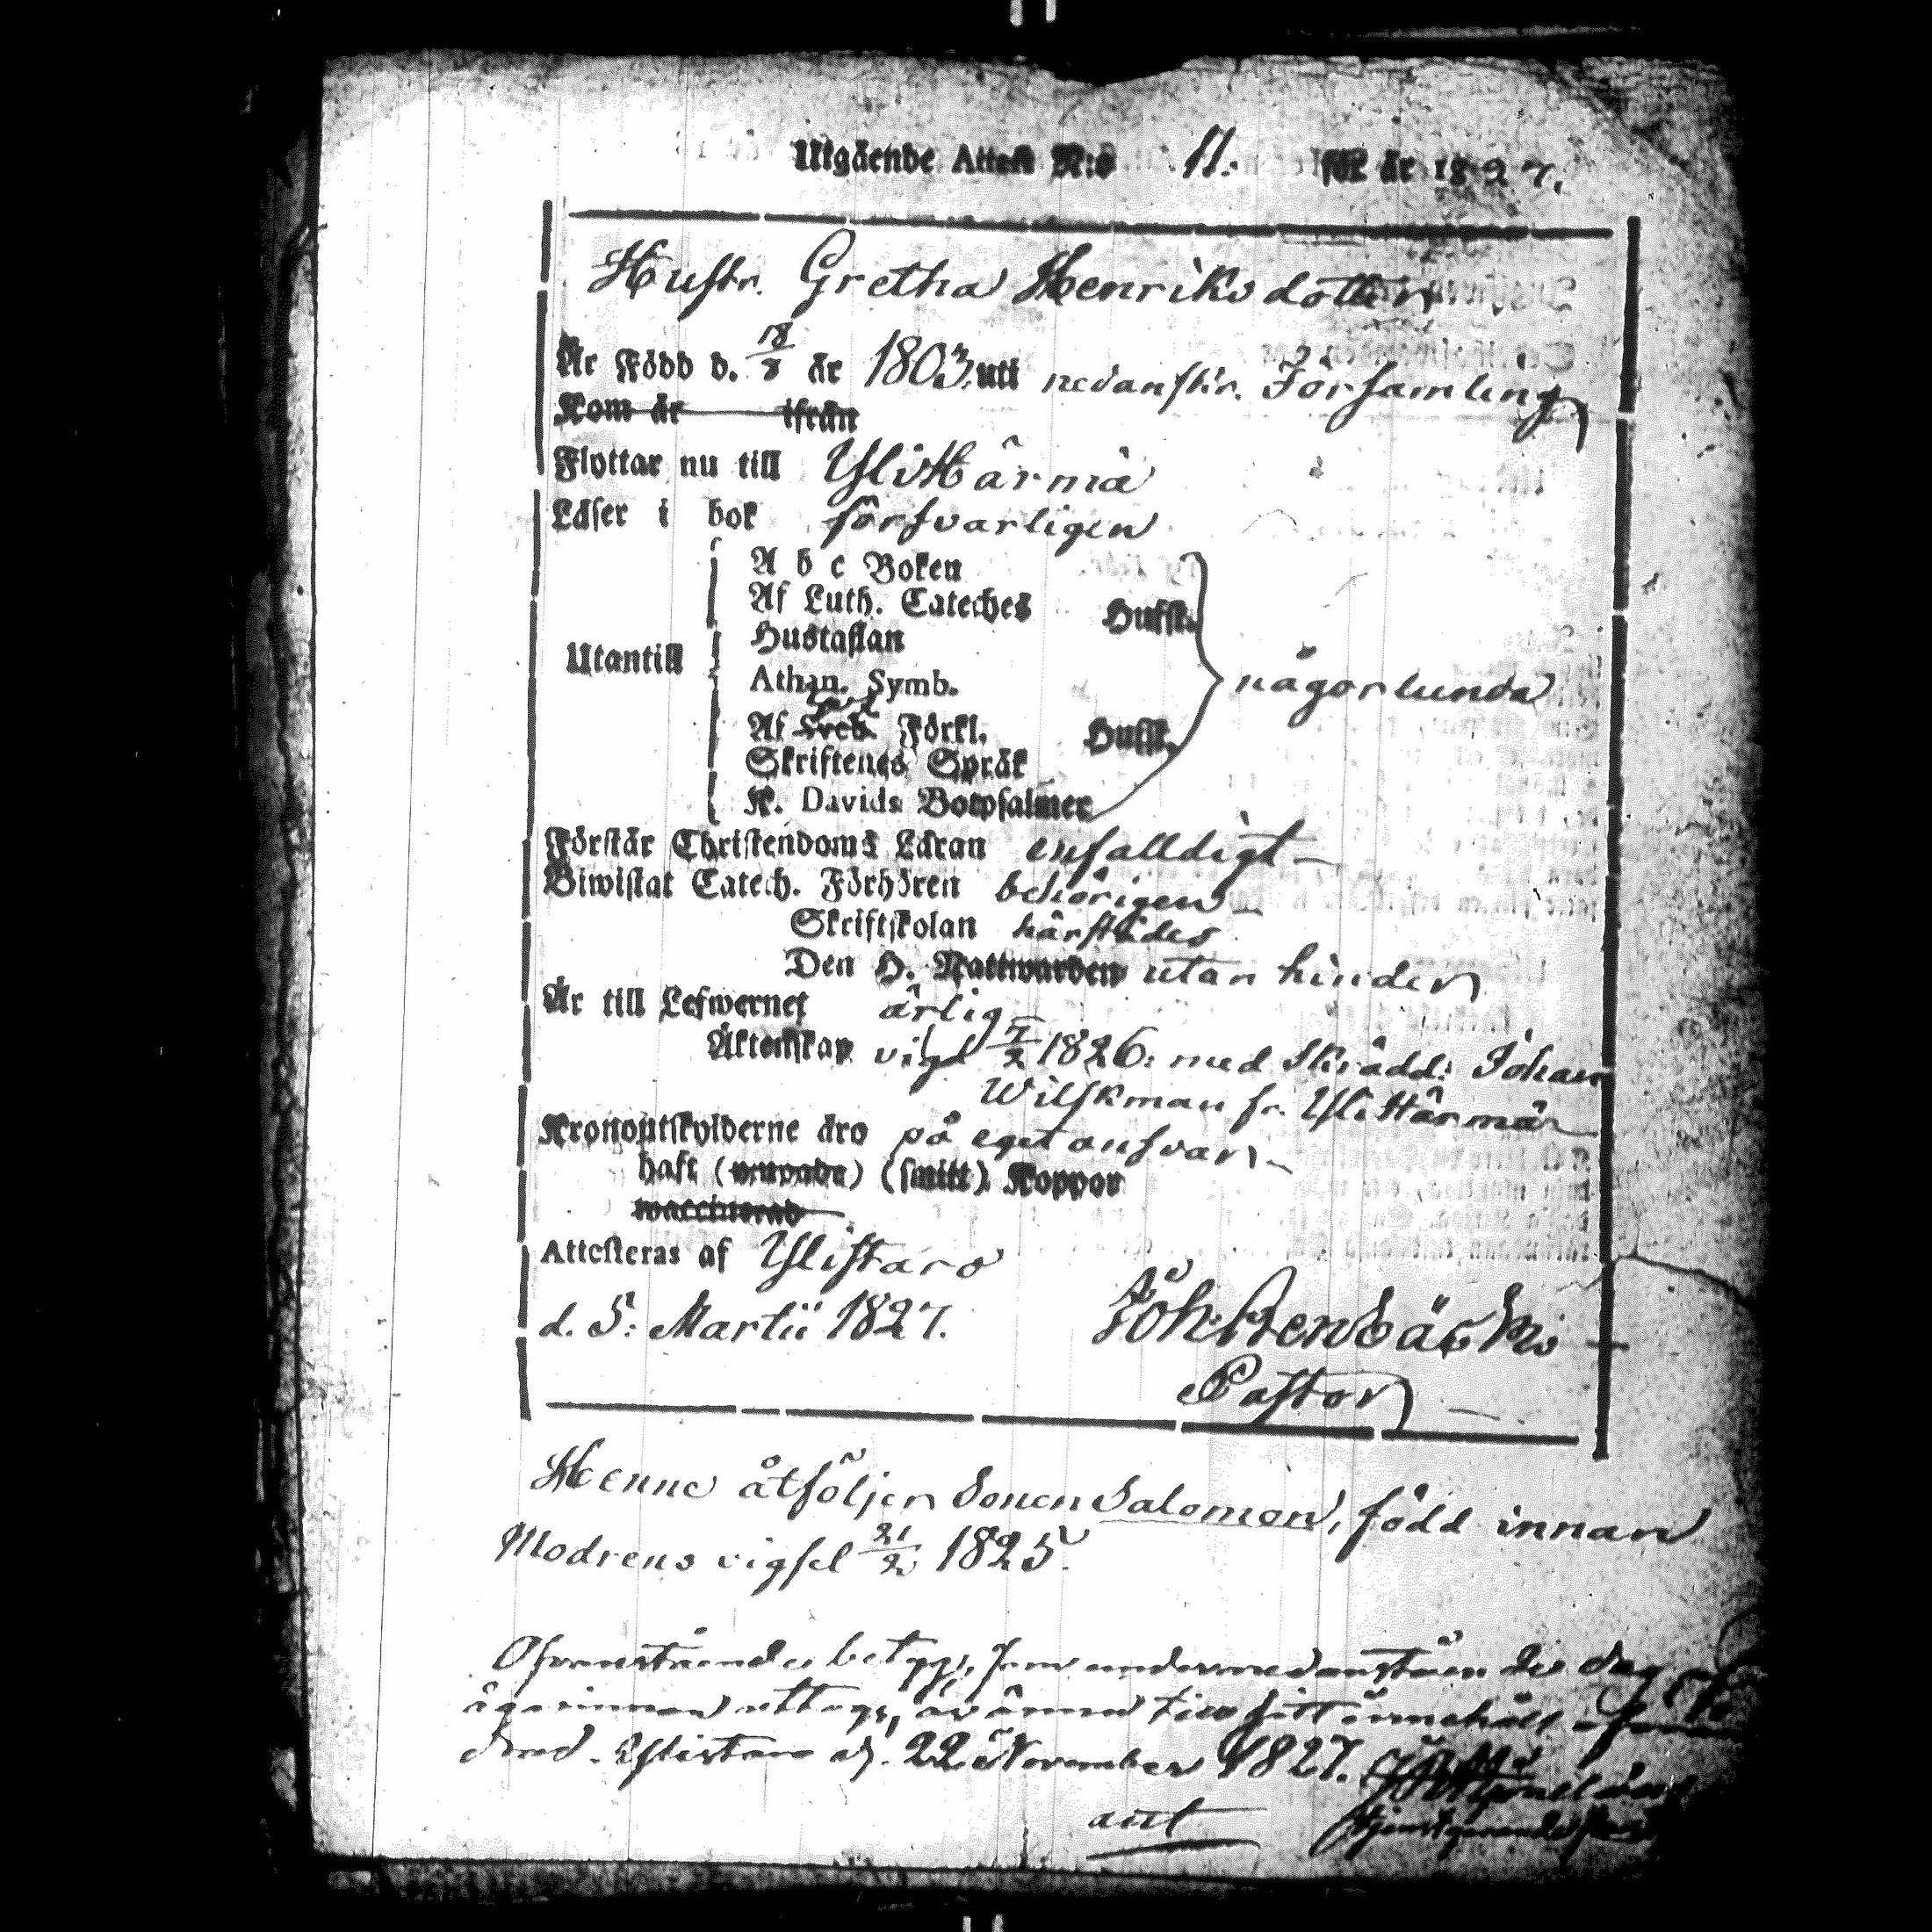 Utgående Attest N:o 11. för år 1827.
Hustr. Gretha Henriksdotter
Är Född d. 18/8 år 1803. uti nedanskr. Församling
Kom år ifrån
Flyttar nu till YliHärmä
Läser i bok försvarligen
A b c Boken
Af Luth. Cateches Hufst.
Hustaflan
Utantill
Athan. Symb. någorlunda
Af Sveb. Förkl. Hufst.
Skriftenes Språk
K. Davids Botpsalmer
Förstår Christendoms Läran enfalldigt
Biwistat Catech. Förhören behörigen
Skriftskolan härstädes
Den H. Nattwarden utan hinder
Är till Lefwernet ärlig
Äktenskap vigd 7/2 1826: med Skrädd: Johan
Wilskman fr. YliHärmä
Kronoutskylderne äro på eget ansvar
haft (smitt) Koppor
waccinerad
Attesteras af Ylistaro
d. 5: Martii 1827. Joh. Stenbäck
Pastor
Henne åtföljer Sonen Salomon, född innan
Modrens vigsel 21/2 1825.
Ofvanstående betyg, som undermedanstående dag
innehåll
Ylistaro d. 22 November 1827.